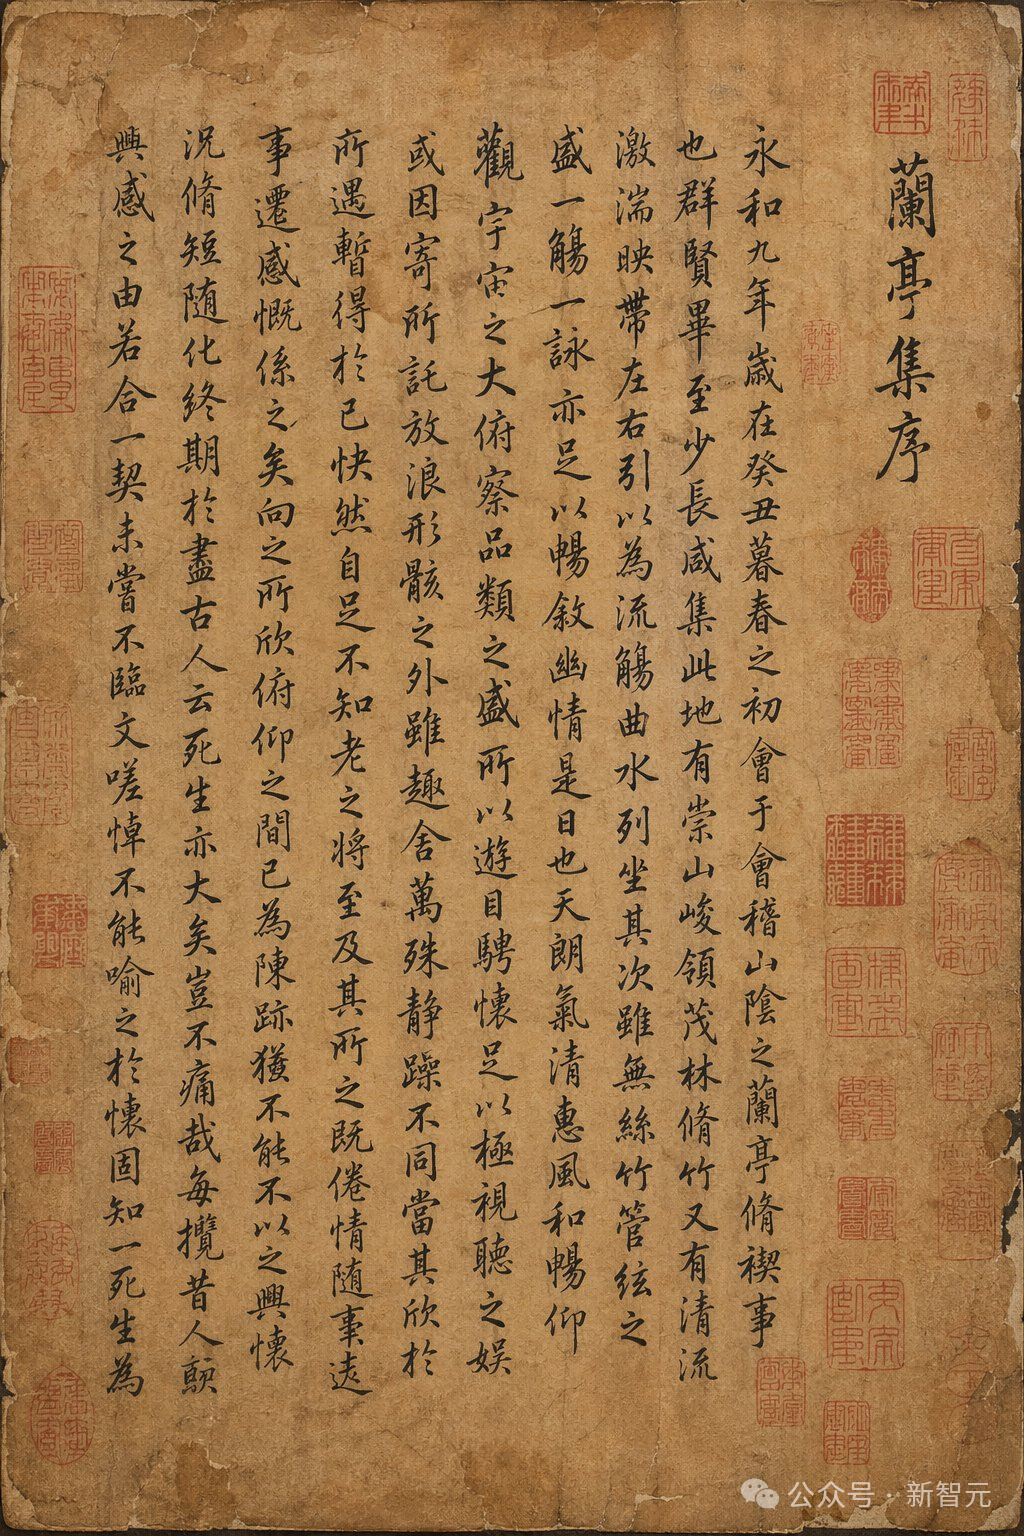 蘭亭集序
永和九年歲在癸丑暮春之初會于會稽山陰之蘭亭脩禊事
也群賢畢至少長咸集此地有崇山峻領茂林脩竹又有清流
激湍映帶左右引以為流觴曲水列坐其次雖無絲竹管絃之
盛一觴一詠亦足以暢敘幽情是日也天朗氣清惠風和暢仰
觀宇宙之大俯察品類之盛所以遊目騁懷足以極視聽之娛
或因寄所託放浪形骸之外雖趣舍萬殊静躁不同當其欣於
所遇暫得於己快然自足不知老之將至及其所之既倦情随事遠
事遷感慨係之矣向之所欣俯仰之間已為陳跡不能不以之興懷
況脩短随化終期於盡古人云死生亦大矣豈不痛哉每攬昔人
興感之由若合一契未嘗不臨文嗟悼不能喻之於懷固知一死生為
公众号·新智元